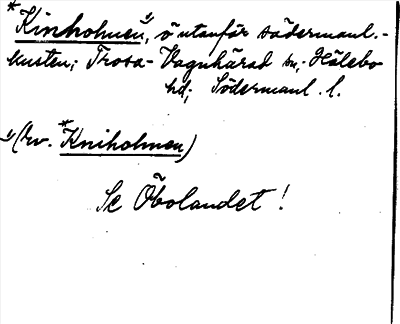 *Kinholmen¹⁾, ö utanför södermanl.-
kusten; Trosa-Vagnhärad sn, Hölebo
hd; Södermanl. l.
¹⁾(Äv. *Kniholmen)
Se Öbolandet!